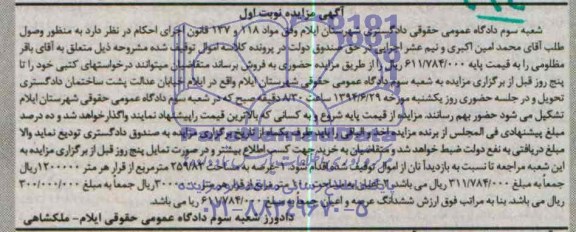 آگهی مزایده نوبت اول
شعبه سوم دادگاه عمومی حقوقی دادگستری شهرستان ایلام وفق مواد ۱۱۸ و ۱۴۷ قانون اجرای احکام در نظر دارد به منظور وصول
طلب آقای محمد امین اکبری و نیم عشر اجرایی در حق صندوق دولت در پرونده کلاسه اموال توقیف شده مشروحه ذیل متعلق به آقای باقر
مظلومی را به قیمت پایه ۶۱۱/۷۸۴/۰۰۰ ریال از طریق مزایده حضوری به فروش برساند متقاضیان میتوانند درخواستهای کتبی خود را تا
پنج روز قبل از برگزاری مزایده به شعبه سوم دادگاه عمومی حقوقی شهرستان ایلام واقع در ایلام خیابان عدالت پشت ساختمان دادگستری
تحویل و در جلسه حضوری روز یکشنبه مورخه ۱۳۹۴/۶/۲۹ ساعت ۸/۳۰ دقیقه صبح که در شعبه سوم دادگاه عمومی حقوقی شهرستان ایلام
تشکیل می شود حضور بهم رسانند. مزایده از قیمت پایه شروع و به کسانی که بالاترین قیمت را پیشنهاد نمایند واگذار خواهد شد و ده درصد
مبلغ پیشنهادی فی المجلس از برنده مزایده اخذ و الباقی را باید ظرف یکماه از تاریخ برگزاری مزایده به صندوق دادگستری تودیع نماید والا
مبلغ دریافتی به نفع دولت ضبط خواهد شد و متقاضیان به خرید جهت کسب اطلاع بیشتر و در صورت تمایل پنج روز قبل از برگزاری مزایده به
این شعبه مراجعه تا نسبت به بازدید آنان از اموال توقیف شده اقدام شود ۱- عرصه به مساحت ۲۵۹/۸۲ مترمربع از قرار هر متر ۱۲۰۰۰۰۰ ریال
جمعاً به مبلغ ۳۱۱/۷۸۴/۰۰۰ ریال می باشد. ۲- اعیان به مساحت مترمربع از قرار هر متر ریال جمعاً به مبلغ ۳۰۰/۰۰۰/۰۰۰
ریال می باشد. بنا به مراتب فوق ارزش ششدانگ عرصه و اعیان جمعاً به مبلغ ۶۱۱/۷۸۴/۰۰۰ ریال می باشد.
دادورز شعبه سوم دادگاه عمومی حقوقی ایلام- ملکشاهی
۰۲۱-۸۸۳۴۹۶۷۰-۵